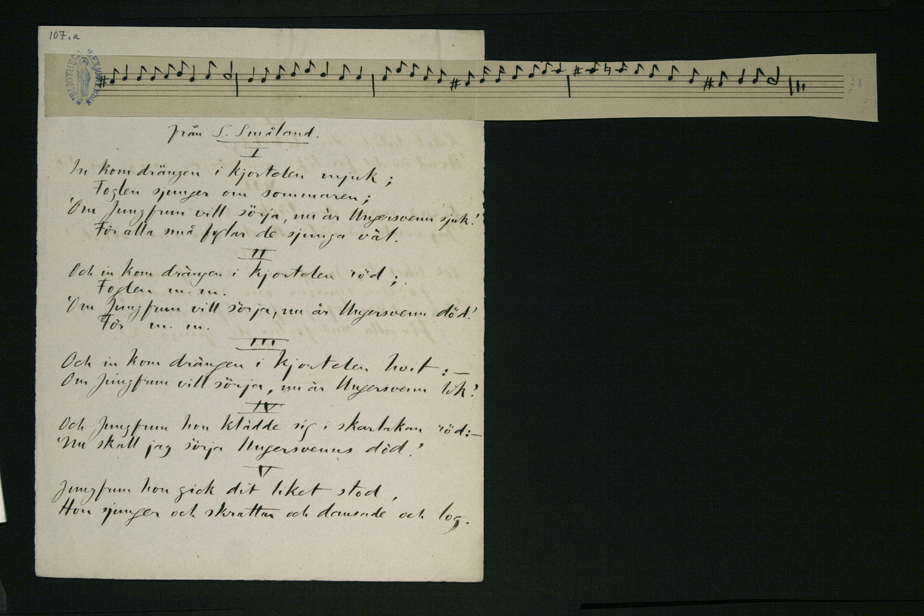 107.a
från S. Småland.
I
In kom drängen i kjortelen mjuk;
Foglen sjunger om sommaren;
'Om Jungfrun vill sörja, nu är Ungersvenn sjuk!'
För alla små foglar de sjunga väl.
II
Och in kom drängen i kjortelen röd;
Foglen m. m.
'Om Jungfrun vill sörja, nu är Ungersvenn död!'
För m. m.
III
Och in kom drängen i kjortelen hvit:—
Om Jungfrun vill sörja, nu är Ungersvenn lik!
IV
Och Jungfrun hon klädde sig i skarlakan röd:—
'Nu skall jag sörja Ungersvenns död!'
V
Jungfrun hon gick dit liket stod,
Hon sjunger och skrattar och dansade och log.